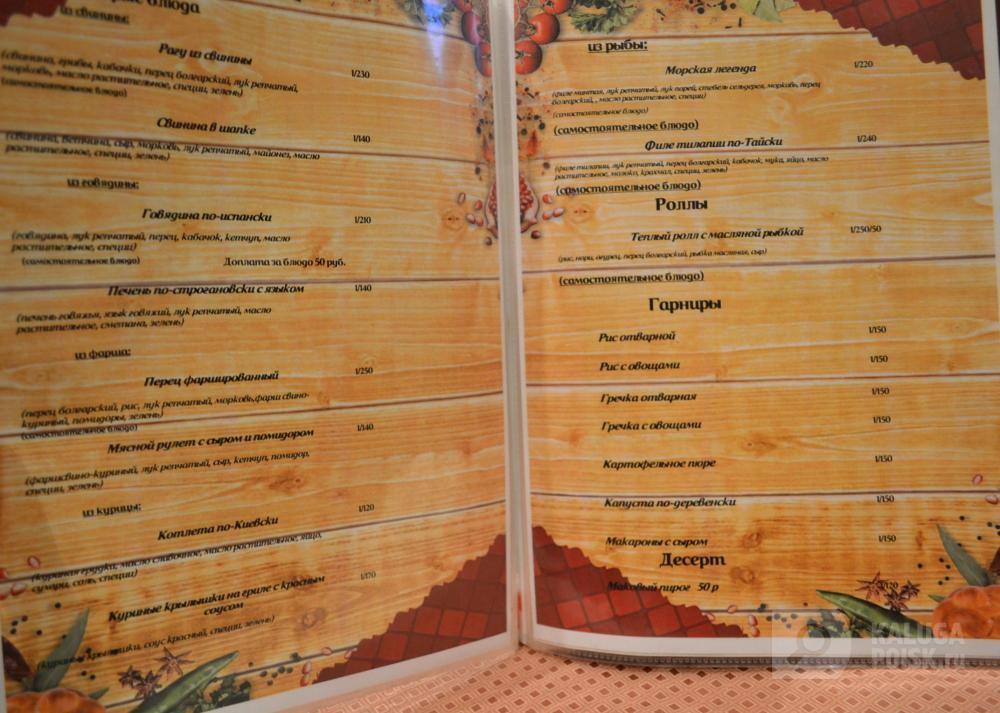 блюда
из свинины:
Рагу из свинины 1/230
(свинина, грибы, кабачки, перец болгарский, лук репчатый,
морковь, масло растительное, специи, зелень)
(самостоятельное блюдо)
Свинина в шапке 1/140
(свинина, ветчина, сыр, морковь, лук репчатый, майонез, масло
растительное, специи, зелень)
из говядины:
Говядина по-испански 1/210
(говядина, лук репчатый, перец, кабачок, кетчуп, масло
растительное, специи)
(самостоятельное блюдо) Доплата за блюдо 50 руб.
Печень по-строгановски с языком 1/140
(печень говяжья, язык говяжий, лук репчатый, масло
растительное, сметана, зелень)
из фарша:
Перец фаршированный 1/250
(перец болгарский, рис, лук репчатый, морковь,фарш свино-
куриный, помидоры, зелень)
(самостоятельное блюдо)
Мясной рулет с сыром и помидором 1/140
(фаршсвино-куриный, лук репчатый, сыр, кетчуп, помидор,
специи, зелень)
из курицы:
Котлета по-Киевски 1/120
(куриная грудка, масло сливочное, масло растительное, яйцо,
сухари, соль, специи)
Куриные крылышки на гриле с красным 1/170
соусом
(куриные крылышки, соус красный, специи, зелень)
из рыбы:
Морская легенда 1/220
(филе минтая, лук репчатый, лук порей, стебель сельдерея, морковь, перец
болгарский, , масло растительное, специи)
(самостоятельное блюдо)
(самостоятельное блюдо)
Филе тилапии по-Тайски 1/240
(филе тилапии, лук репчатый, перец болгарский, кабачок, мука, яйцо, масло
растительное, молоко, крахмал, специи, зелень)
(самостоятельное блюдо)
Роллы
Теплый ролл с масляной рыбкой 1/250/50
(рис, нори, огурец, перец болгарский, рыбка масляная, сыр)
(самостоятельное блюдо)
Гарниры
Рис отварной 1/150
Рис с овощами 1/150
Гречка отварная 1/150
Гречка с овощами 1/150
Картофельное пюре 1/150
Капуста по-деревенски 1/150
Макароны с сыром 1/150
Десерт
Маковый пирог 50 р 1/120
KALUGA
POISK.ru